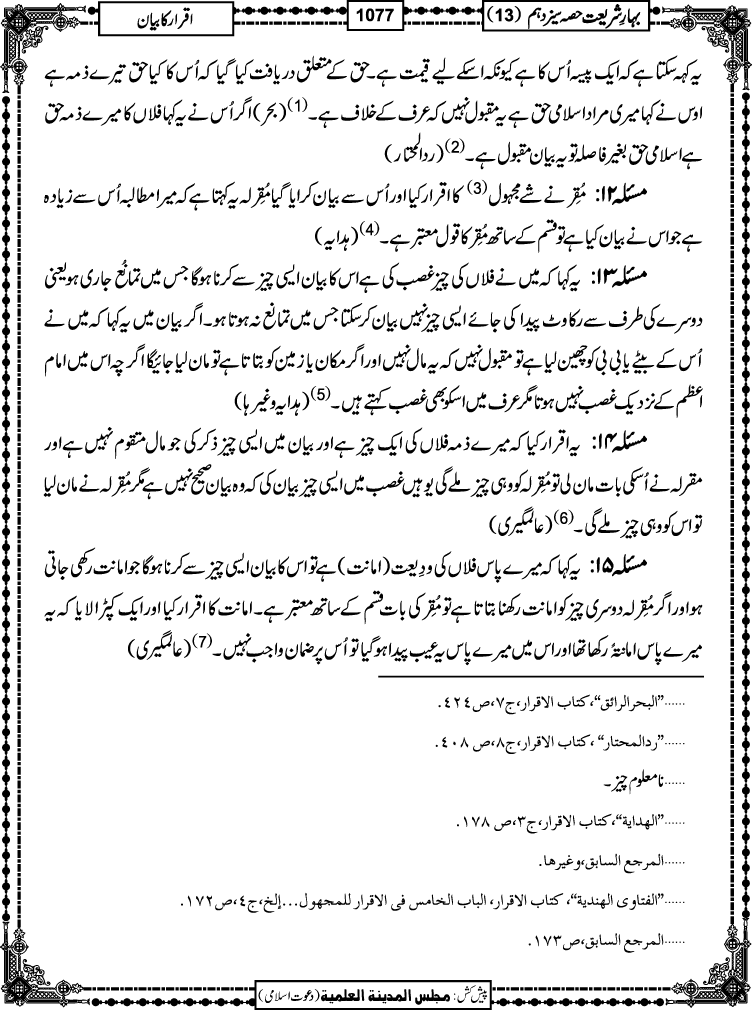 بہارِ شریعت حصہ سیزدہم (13)
1077
اقرار کا بیان
یہ کہہ سکتا ہے کہ ایک پیسہ اُس کا ہے کیونکہ اسکے لیے قیمت ہے۔ حق کے متعلق دریافت کیا گیا کہ اُس کا کیا حق تیرے ذمہ ہے
اوس نے کہا میری مراد اسلامی حق ہے یہ مقبول نہیں کہ عرف کے خلاف ہے۔(1) (بحر) اگر اُس نے یہ کہا فلاں کا میرے ذمہ حق
ہے اسلامی حق بغیر فاصلہ تو یہ بیان مقبول ہے۔(2) (ردالمحتار)
مسئلہ ۱۲: مُقِر نے شے مجہول(3) کا اقرار کیا اور اُس سے بیان کرایا گیا مُقِر لہ یہ کہتا ہے کہ میرا مطالبہ اُس سے زیادہ
ہے جو اس نے بیان کیا ہے تو قسم کے ساتھ مُقِر کا قول معتبر ہے۔(4) (ہدایہ)
مسئلہ ۱۳: یہ کہا کہ میں نے فلاں کی چیز غصب کی ہے اس کا بیان ایسی چیز سے کرنا ہوگا جس میں تمانُع جاری ہو یعنی
دوسرے کی طرف سے رکاوٹ پیدا کی جائے ایسی چیز نہیں بیان کرسکتا جس میں تمانع نہ ہوتا ہو۔ اگر بیان میں یہ کہا کہ میں نے
اُس کے بیٹے یا بی بی کو چھین لیا ہے تو مقبول نہیں کہ یہ مال نہیں اور اگر مکان یا زمین کو بتاتا ہے تو مان لیا جائیگا اگرچہ اس میں امام
اعظم کے نزدیک غصب نہیں ہوتا مگر عرف میں اسکو بھی غصب کہتے ہیں۔(5) (ہدایہ وغیرہا)
مسئلہ ۱۴: یہ اقرار کیا کہ میرے ذمہ فلاں کی ایک چیز ہے اور بیان میں ایسی چیز ذکر کی جو مال متقوم نہیں ہے اور
مقرلہ نے اُسکی بات مان لی تو مُقِر لہ کو وہی چیز ملے گی یوہیں غصب میں ایسی چیز بیان کی کہ وہ بیان صحیح نہیں ہے مگر مُقِر لہ نے مان لیا
تو اس کو وہی چیز ملے گی۔(6) (عالمگیری)
مسئلہ ۱۵: یہ کہا کہ میرے پاس فلاں کی ودِیعت (امانت) ہے تو اس کا بیان ایسی چیز سے کرنا ہوگا جو امانت رکھی جاتی
ہو اور اگر مُقِر لہ دوسری چیز کو امانت رکھنا بتاتا ہے تو مُقِر کی بات قسم کے ساتھ معتبر ہے۔ امانت کا اقرار کیا اور ایک کپڑا لایا کہ یہ
میرے پاس امانۃً رکھا تھا اور اس میں میرے پاس یہ عیب پیدا ہوگیا تو اُس پر ضمان واجب نہیں۔(7) (عالمگیری)
......”البحرالرائق“،کتاب الاقرار،ج٧،ص٤٢٤.
......”ردالمحتار“،کتاب الاقرار،ج٨،ص ٤٠٨.
......نامعلوم چیز۔
......”الھدایة“،کتاب الاقرار،ج٣،ص ١٧٨.
......المرجع السابق،وغیرھا.
......”الفتاوی الھندیة“، کتاب الاقرار، الباب الخامس فی الاقرار للمجھول...إلخ،ج٤،ص١٧٢.
......المرجع السابق،ص١٧٣.
پیش کش: مجلس المدینة العلمیة (دعوت اسلامی)